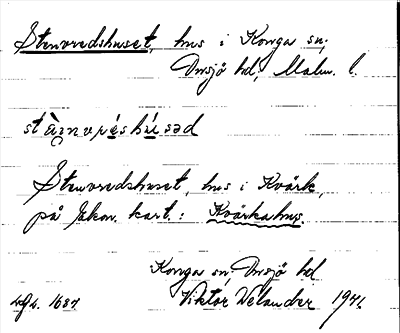 Stenvredshuset, hus i Konga sn;
Onsjö hd, Malm. l.
Stenvredshuset, hus i Kvärk,
på Ekon. kart.: Kvärkahus.
Konga sn; Onsjö hd
Viktor Welander 1941.